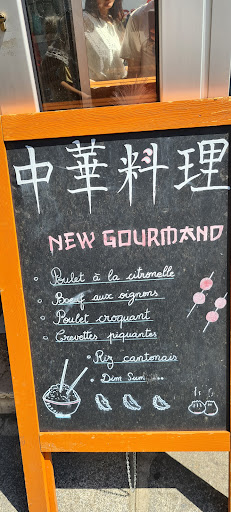 中華料理
NEW GOURMAND
Poulet à la citronelle
Bœuf aux oignons
Poulet croquant
Crevettes piquantes
Riz cantonais
Dim Sum ....